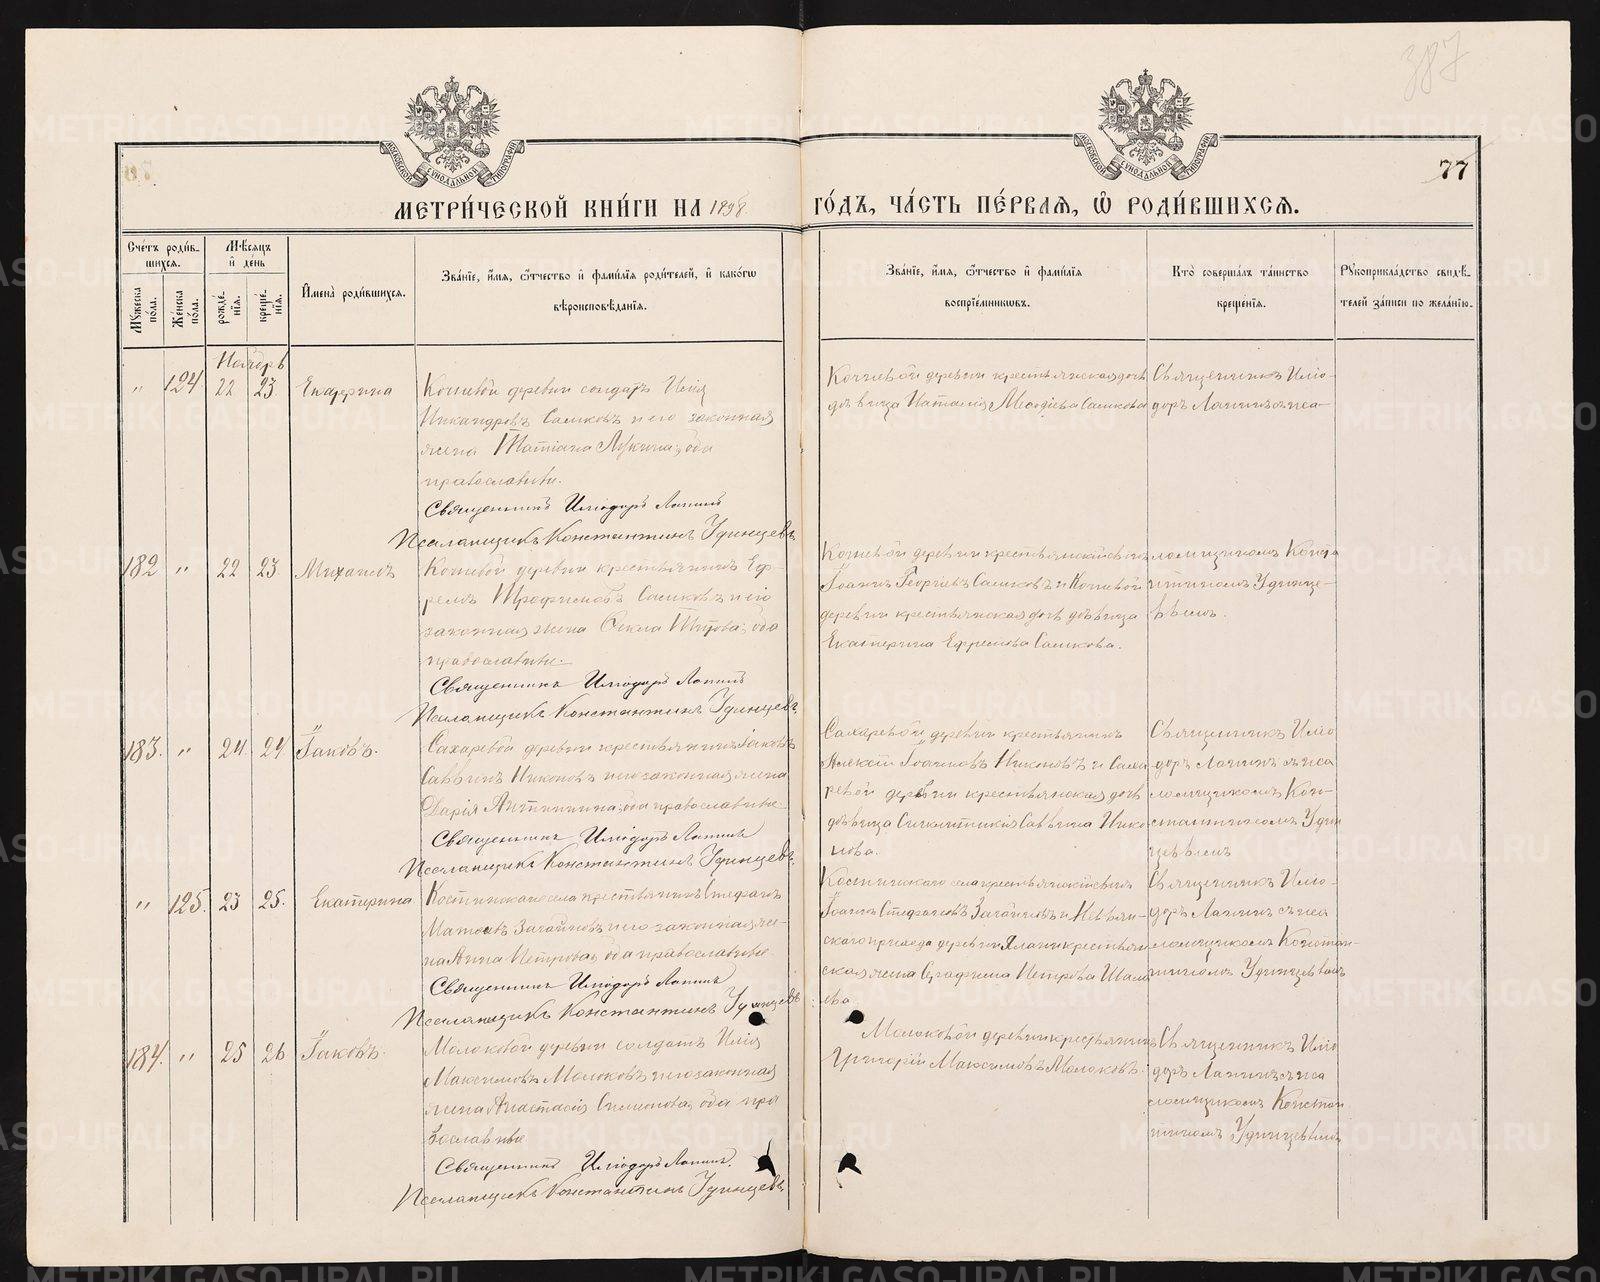 387
77
МЕТРИ́ЧЕСКОЙ КНИ́ГИ НА 1898 ГО́ДЪ, ЧА́СТЬ ПЕ́РВАѦ, Ѡ҆ РОДИ́ВШИХСѦ.
Сче́тъ роди́в-
шихсѧ.
Мѣ́сѧцъ
и҆ де́нь
Мꙋ́жеска по́ла.
Же́нска по́ла.
рожде́-нїѧ.
креще́-нїѧ.
И҆мена̀ роди́вшихсѧ.
Зва́нїе, и҆́мѧ, ѻ҆́тчество и҆ фами́лїѧ роди́телей, и҆ како́гѡ
вѣроисповѣ́данїѧ.
Зва́нїе, и҆́мѧ, ѻ҆́тчество и҆ фами́лїѧ
воспрїе́мникѡвъ.
Кто̀ соверша́лъ та́инство
креще́нїѧ.
Рꙋкоприкла́дство свидѣ́-
телей за́писи по жела́нїю.
Ноябрь
" 124 22 23 Екатерина
Кочневой деревни солдатъ Илія
Никандровъ Саликовъ и его законная
жена Татіана Лукина, оба
православные.
Священникъ Иліодоръ Лапинъ
Псаломщикъ Константинъ Удинцевъ
Кочневой деревни крестьянская дочь
дѣвица Наталія Меѳодіева Саликова
Священникъ Иліо-
доръ Лапинъ съ пса-
182 " 22 23 Михаилъ
Кочневой деревни крестьянинъ Еф-
ремъ Трофимовъ Саликовъ и его
законная жена Ѳекла Титова, оба
православные.
Священникъ Иліодоръ Лапинъ
Псаломщикъ Константинъ Удинцевъ
Кочневой деревни крестьянскій сынъ
Іоаннъ Георгіевъ Саликовъ и Кочневой
деревни крестьянская дочь дѣвица
Екатерина Ефремова Саликова.
ломщикомъ Конста
нтиномъ Удинце-
вымъ.
183. " 24 24 Іаковъ.
Сахаревой деревни крестьянинъ Іаковъ
Саввинъ Никоновъ и его законная жена
Дарія Антипина, оба православные
Священникъ Иліодоръ Лапинъ
Псаломщикъ Константинъ Удинцевъ.
Сахаревой деревни крестьянинъ
Алексій Іоакимовъ Никоновъ и Саха
ревой деревни крестьянская дочь
дѣвица Синклитикія Саввина Нико
нова.
Священникъ Иліо
доръ Лапинъ съ пса
ломщикомъ Кон-
стантиномъ Удин
цевымъ
" 125. 23 25. Екатерина
Костинскаго села крестьянинъ Стефанъ
Матѳіевъ Загайновъ и его законная же-
на Анна Петрова, оба православные
Священникъ Иліодоръ Лапинъ
Псаломщикъ Константинъ Удинцевъ
Костинскаго села крестьянскій сынъ
Іоаннъ Стефановъ Загайновъ и Невьян-
скаго прихода деревни Ялани крестьян
ская жена Серафима Петрова
Священникъ Иліо-
доръ Лапинъ съ пса
ломщикомъ Констан-
тиномъ Удинцевымъ
184. " 25 26 Іаковъ.
Молоковой деревни солдатъ Илія
Максимовъ Молоковъ и его законная
жена Анастасія Симонова, оба пра
вославные
Священникъ Иліодоръ Лапинъ.
Псаломщикъ Константинъ Удинцевъ.
Молоковой деревни крестьянинъ
Григорій Максимовъ Молоковъ.
Священникъ Иліо
доръ Лапинъ съ пса
ломщикомъ Констан
тиномъ Удинцевымъ
METRIKI.GASO-URAL.RU